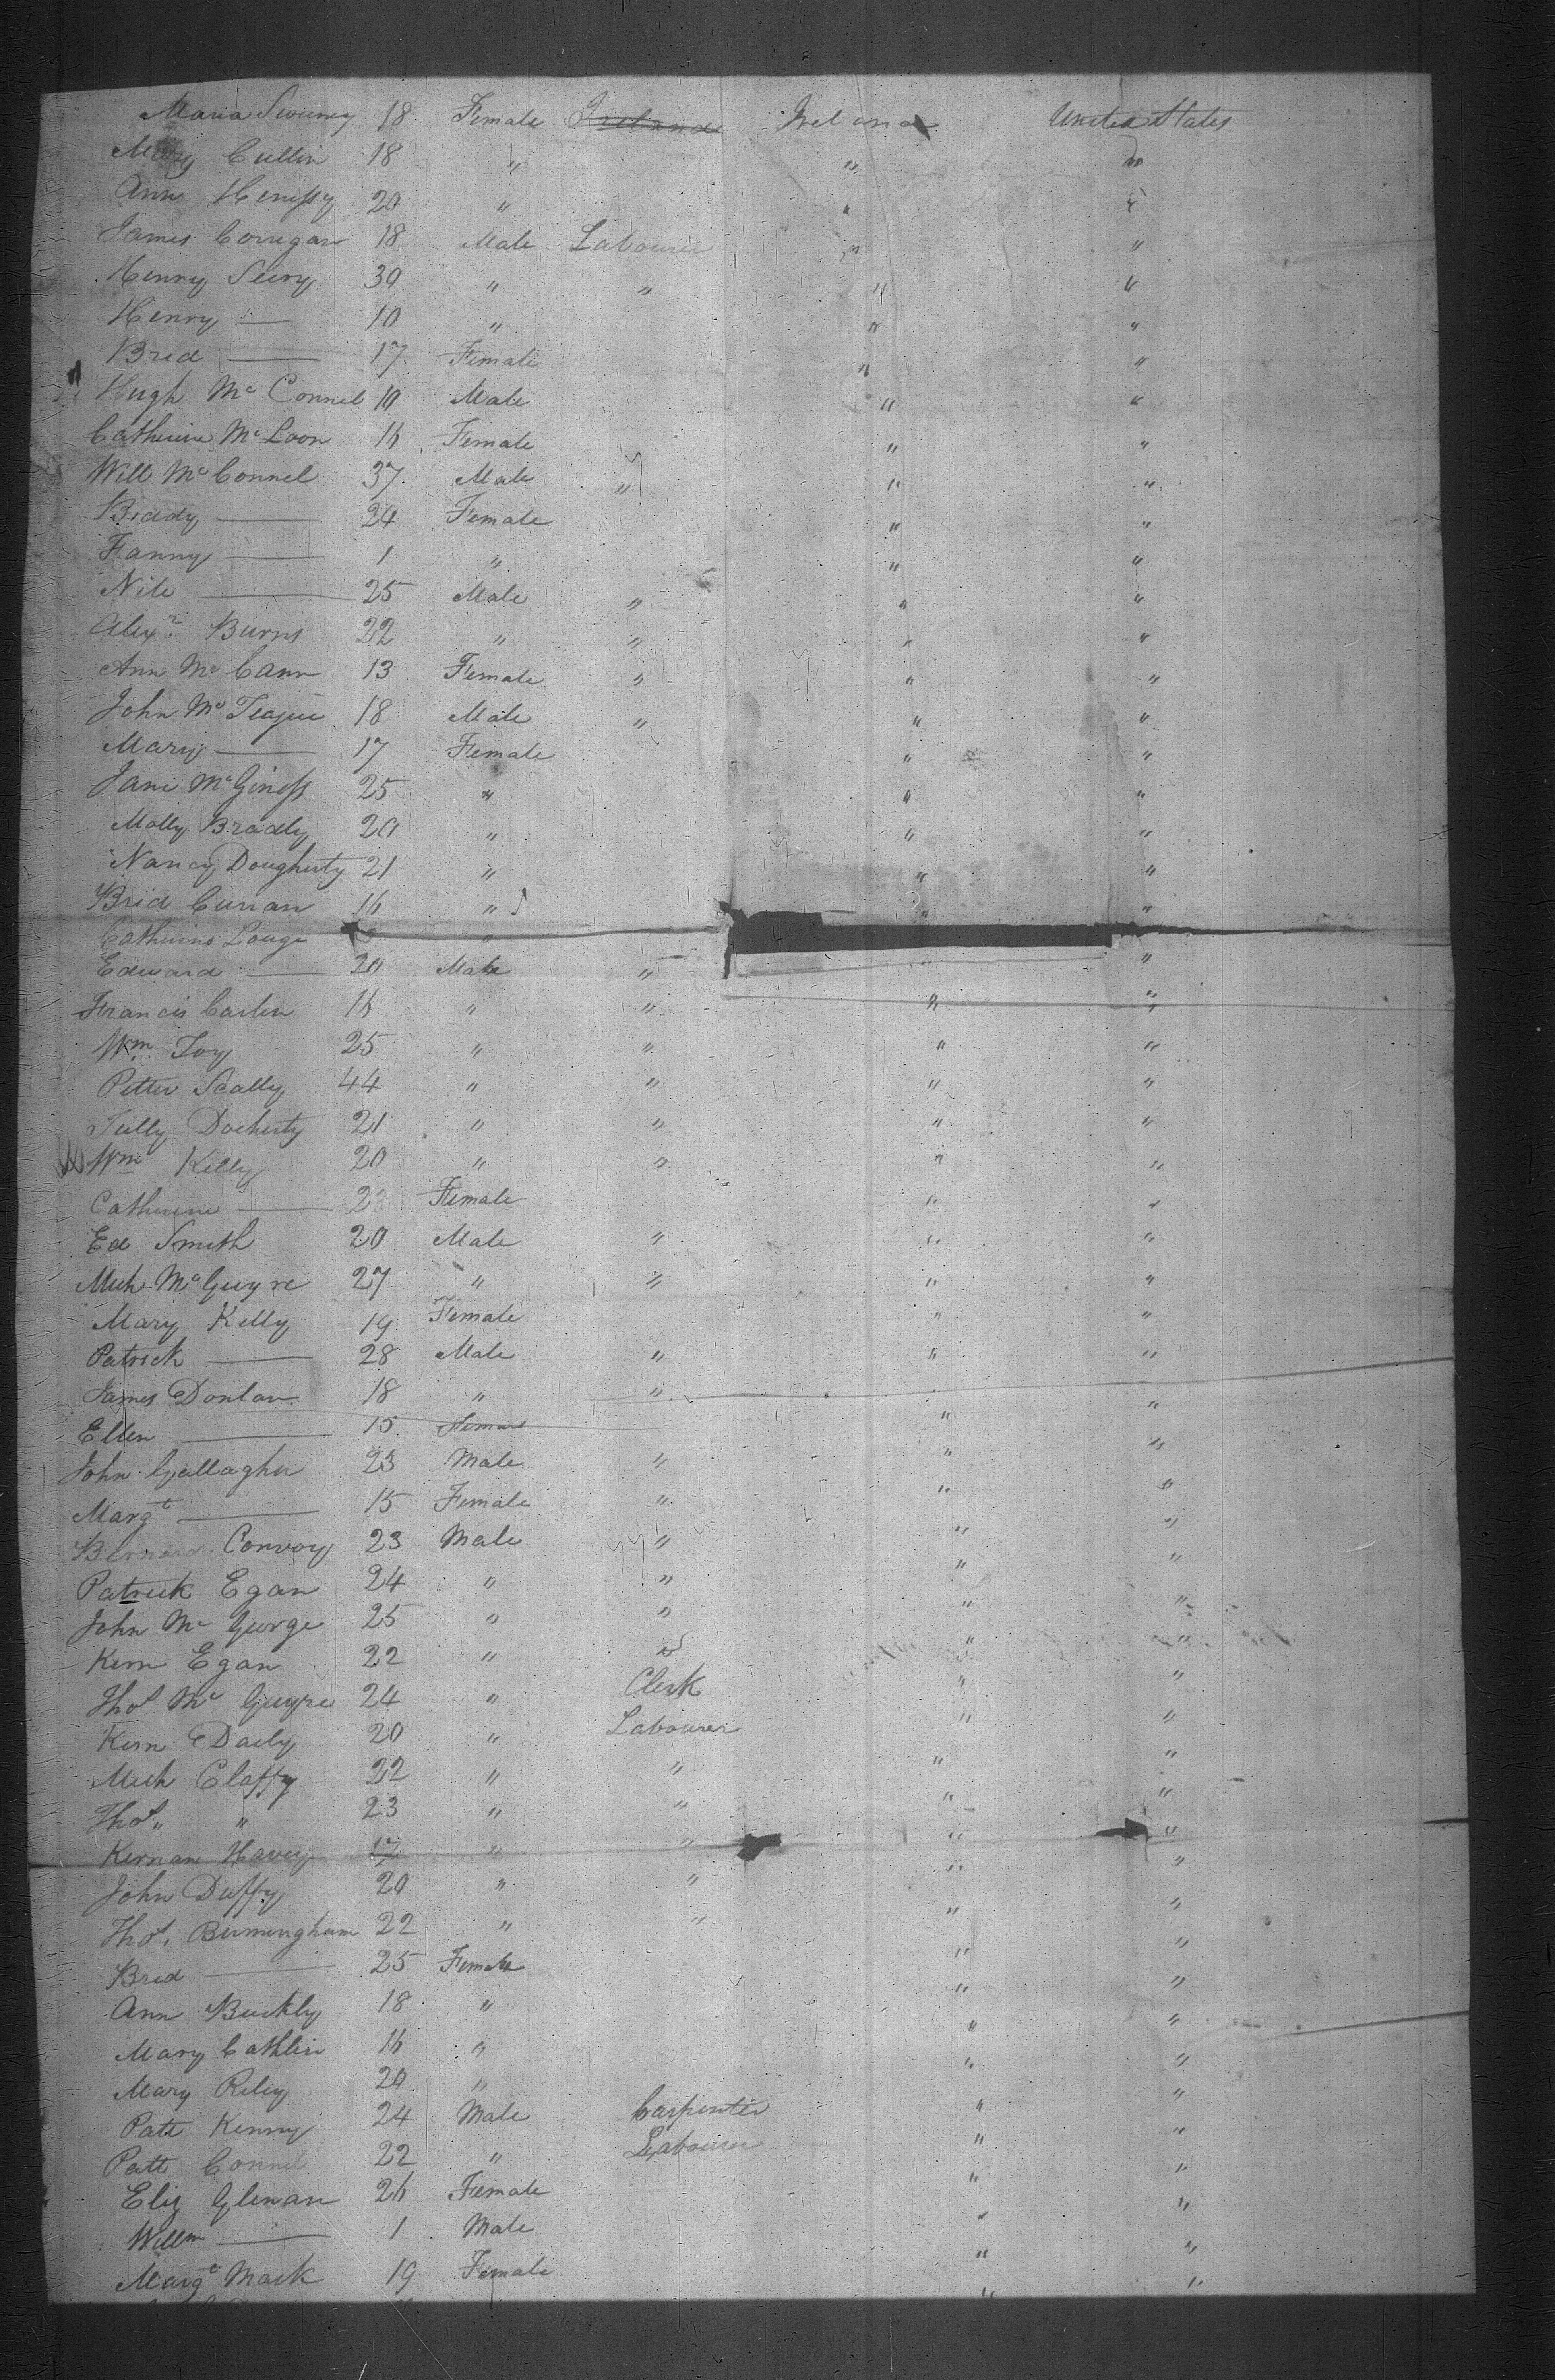 Maria Sweeney 18 Female Ireland Ireland United States
Mary Cullin 18 " " "
Ann Henessy 20 " " "
James Corrigan 18 Male Labourer " "
Henry Seery 30 " " " "
Henry — 10 " " "
Brid — 17 Female " "
Hugh Mc Connel 10 Male " "
Catherine Mc Loon 16 Female " "
Will Mc Connel 37 Male " " "
Biddy — 24 Female " "
Fanny — 1 " " "
Nile — 25 Male " " "
Alexr. Burns 22 " " " "
Ann Mc Cann 13 Female " " "
John Mc Teague 18 Male " " "
Mary — 17 Female " "
Jane McGiness 25 " " "
Molly Bradly 20 " " "
Nancy Dougherty 21 " " "
Brid Curran 16 " " "
Catherine Louge "
Edward — 20 Male " " "
Francis Carlin 16 " " " "
Wm. Toy 25 " " " "
Petter Scally 44 " " " "
Tully Docherty 21 " " " "
Wm Kelly 20 " " " "
Catherine — 23 Female " "
Ed Smith 20 Male " " "
Mich McGuyre 27 " " " "
Mary Kelly 19 Female " "
Patrick — 28 Male " " "
James Donlan 18 " " " "
Ellen — 15 Female " "
John Gallagher 23 Male " " "
Margt — 15 Female " " "
Bernard Convoy 23 Male " " "
Patrick Egan 24 " " " "
John Mc George 25 " " " "
Kern Egan 22 " " " "
Thos Mc Guyre 24 " Clerk " "
Kern Daily 20 " Labourer " "
Mich Claffy 22 " " " "
Thos " " 23 " " " "
Kernan Havey 17 " " " "
John Duffy 20 " " " "
Thos. Birmingham 22 " " " "
Brid — 25 Female " "
Ann Buckly 18 " " "
Mary Cathlin 16 " " "
Mary Riley 20 " " "
Patt Kenny 24 Male Carpenter " "
Patt Connel 22 " Labourer " "
Eliz Glenan 26 Female " "
Willm — 1 Male " "
Margt Mark 19 Female " "